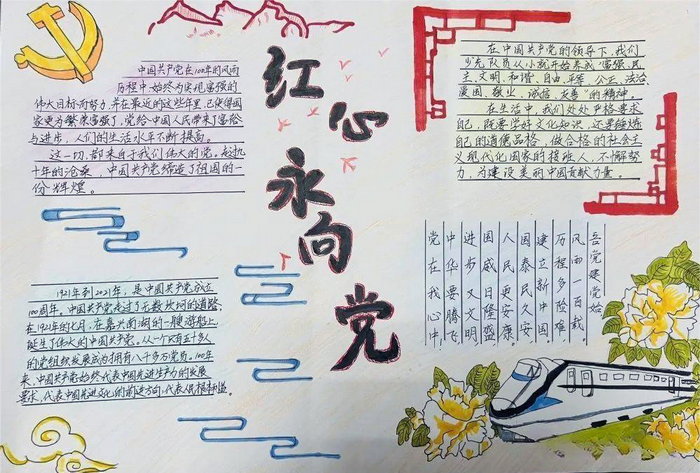 红心永向党
中国共产党在100年的风雨
历程中,始终为实现富强的
伟大目标而努力,并在最近的这些年里,已使得国
家更为繁荣富强了,党给中国人民带来了富裕
与进步,人们的生活水平不断提高。
这一切,都来自于我们伟大的党。
十年的沧桑,中国共产党缔造了祖国的一
份辉煌。
在中国共产党的领导下,我们
少先队员从小就开始养成“富强、民
主、文明、和谐、自由、平等、公正、法治、
爱国、敬业、诚信、友善”的精神。
在生活中,我们处处严格要求
自己,既要学好文化知识,还要锻炼自
己的道德品格,做合格的社会主
义现代化国家的接班人,不懈努
力,为建设美丽中国贡献力量。
1921年到2021年,是中国共产党成立
100周年。中国共产党走过了无数坎坷的道路,
在1921年的七月,在嘉兴南湖的一艘游船上
诞生了伟大的中国共产党。从一个仅五十多人
的党组织发展成为拥有八千多万党员。100年
来,中国共产党始终代表中国先进生产力的发展
要求,代表中国先进文化的前进方向,代表人民根本利益。
吾党建党始
风雨一百载
历程多险难
建立新中国
国泰民久安
人民更安康
国威日隆盛
进步又文明
中华要腾飞
党在我心中